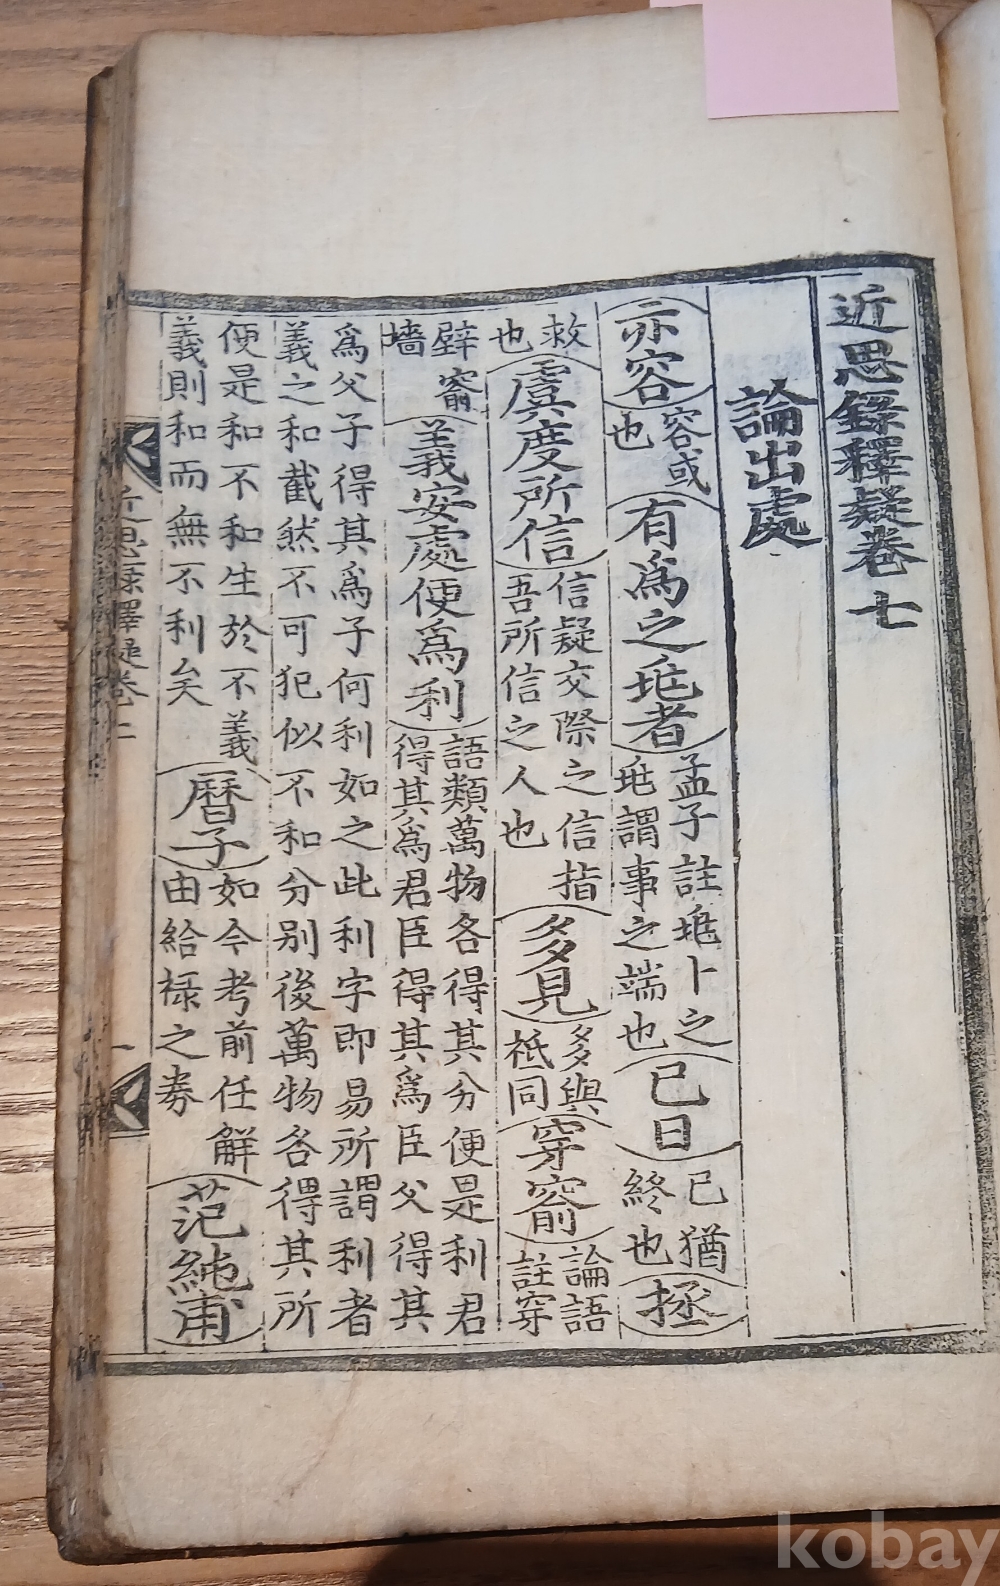 近思錄釋疑卷七
論出處
亦容容或也有爲之兆者孟子註兆卜之兆謂事之端也已日已猶終也拯
救也虞度所信信疑交際之信指吾所信之人也多見多與祗同穿窬論語註穿
壁窬墻義安處便爲利語類萬物各得其分便是利君得其爲君臣得其爲臣父得其
爲父子得其爲子何利如之此利字即易所謂利者義之和截然不可犯似不和分別後萬物各得其所
便是和不和生於不義義則和而無不利矣曆子如今考前任解由給祿之券范純甫
近思錄釋疑卷
一
kobay